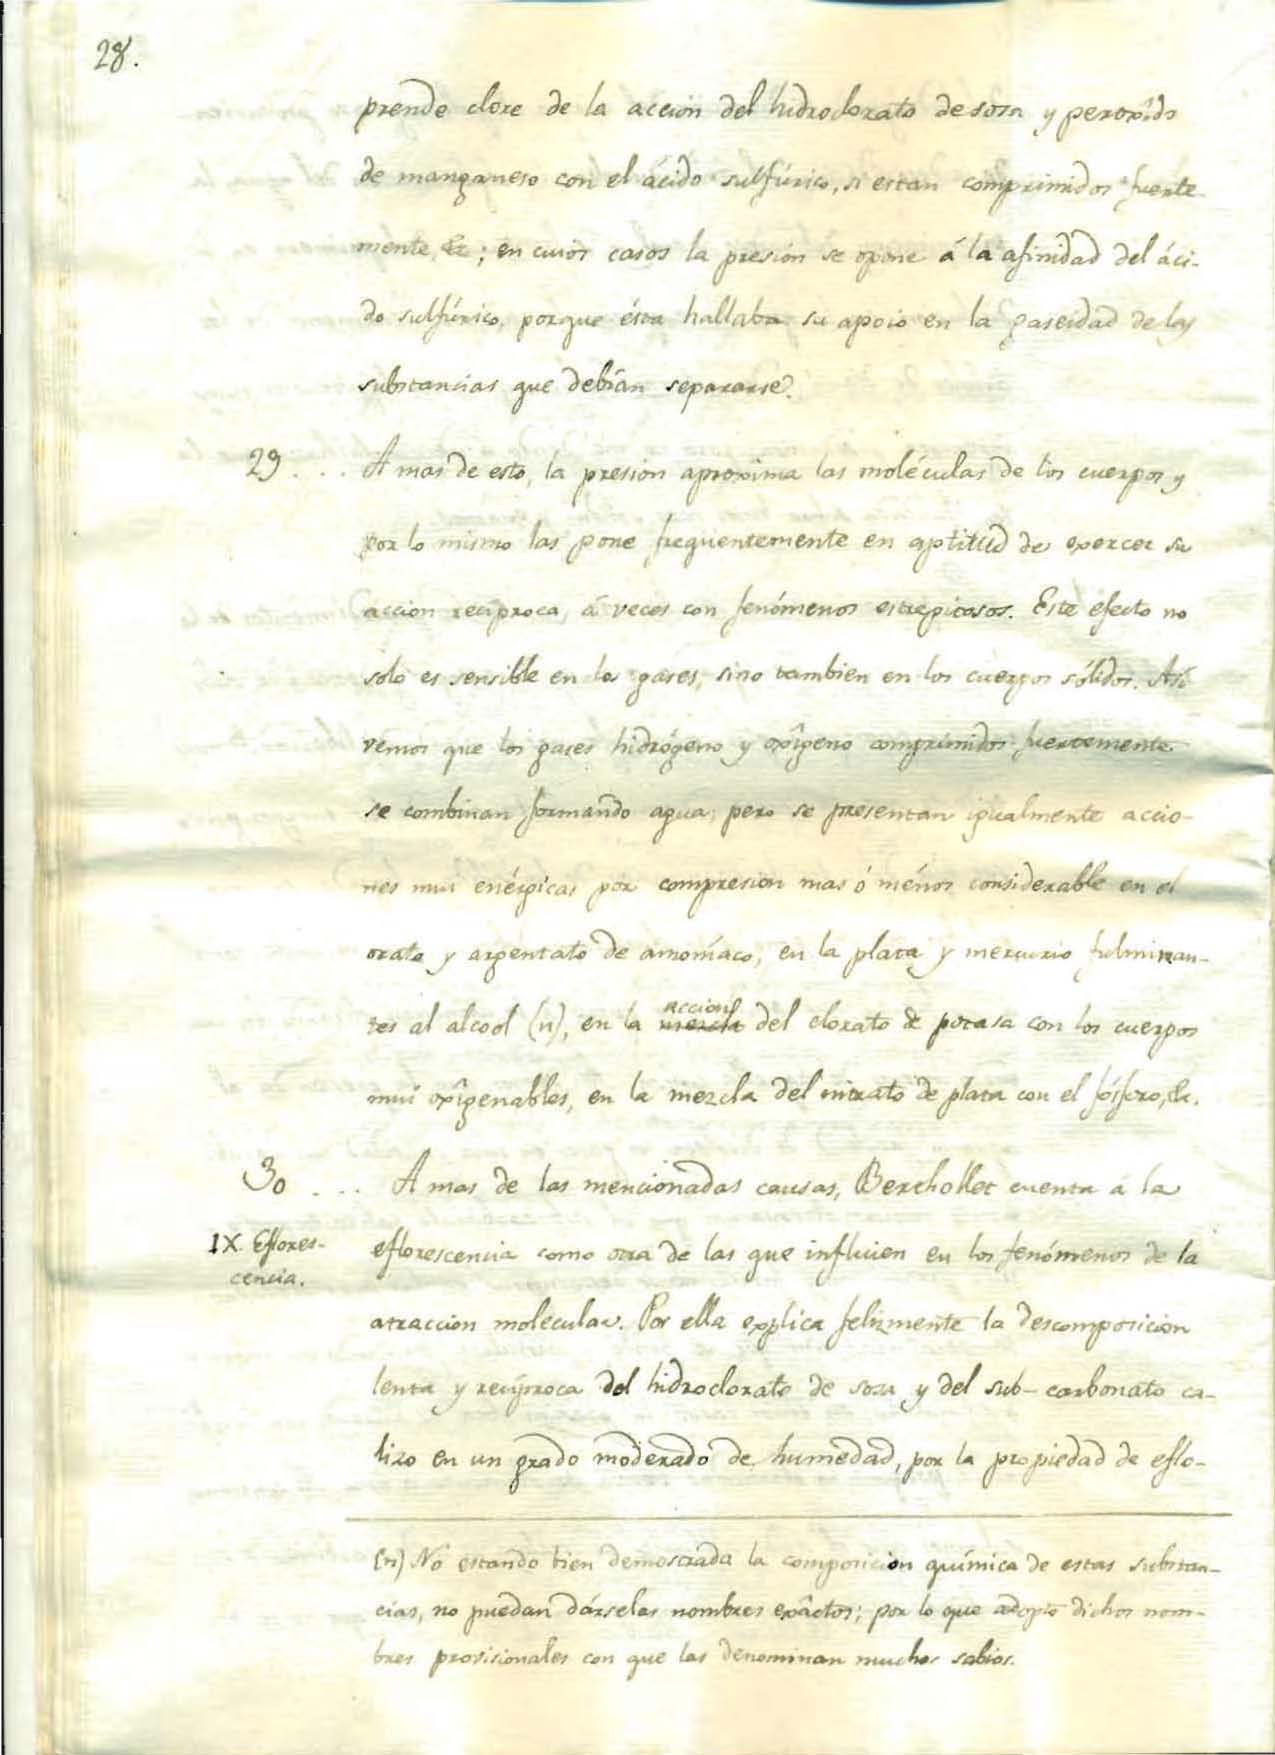 28.
prende clore de la acción del hidroclorato de sosa y peroxîdo
de manganeso con el ácido sulfúrico, si estan comprimidos fuerte-
mente &c; en cuios casos la presion se opone á la afinidad del áci-
do sulfúrico, porque ésta hallaba su apoio en la gaseidad de las
substancias que debían separarse.
29 . . . A mas de esto, la presion aproxima las moléculas de los cuerpos y
por lo mismo las pone freqüentemente en aptitud de exercer su
accion recíproca, á veces con fenómenos estrepitosos. Este efecto no
solo es sensible en los gases, sino tambien en los cuerpos sólidos. Así
vemos que los gases hidrógeno y oxîgeno comprimidos fuertemente
se combinan formando agua; pero se presentan igualmente accio-
nes mui enérgicas por compresion mas ó ménos considerable en el
orato y argentato de amoníaco, en la plata y mercurio fulminan-
tes al alcool (n), en la mezcla accion del clorato de potasa con los cuerpos
mui oxîgenables, en la mezcla del nitrato de plata con el fósforo, &c.
30 . . . A mas de las mencionadas causas, Berthollet cuenta á la
IX. Eflores-
cencia.
eflorescencia como otra de las que influien en los fenómenos de la
atraccion molecular. Por ella explica felizmente la descomposicion
lenta y recíproca del hidroclorato de sosa y del sub-carbonato ca-
lizo en un grado moderado de humedad, por la propiedad de eflo-
(n) No estando bien demostrada la composicion química de estas substan-
cias, no puedan dárselas nombres exâctos; por lo que adopto dichos nom-
bres provisionales con que las denominan muchos sabios.